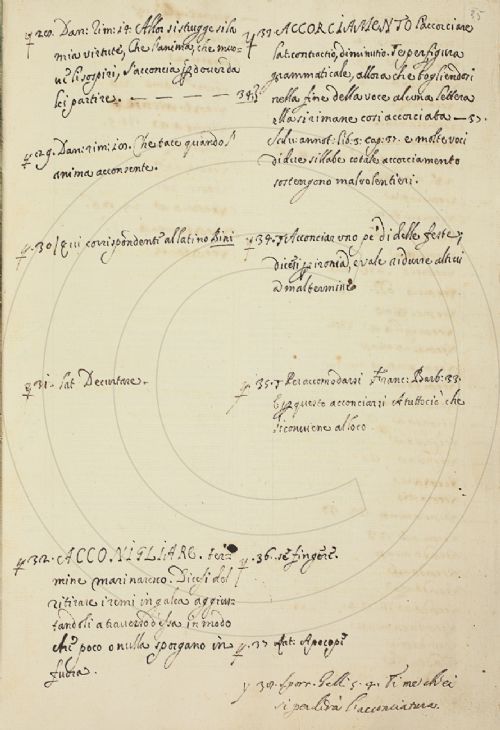 35
℣ 28. Dan: rim: 14. Allor si strugge si la
mia virtute, Che l'anima, che muo-
ve li sospiri, s'acconcia p doverda
lei partire. — — — — 34
℣ 29. Dan: rim: 20. Che tace quando l'
anima acconsente.
℣ 30 / Qui corrispondente al latino Bini
℣ 31. Lat. Decurtare.
℣ 32. ACCONIGLIARE. ter-
mine marinaresco. Dicesi del
ritirare i remi in galea aggius-
tandoli a traverso d'essa in modo
che poco o nulla sporgano in
fuora.
℣ 33. ACCORCIAMENTO l'accorciare
Lat. contractio, diminutio. T e per figura
grammaticale, allora che togliendosi
nella fine della voce alcuna lettera
ella si rimane così accorciata — 37.
Salv: annot: lib: 3: cap: 37. e molte voci
di due sillabe cotale accorciamento
sostengono malvolentieri.
℣ 34. T Acconciar uno pe' dì delle feste,
dicesi p ironia, e vale ridurre altrui
a mal termine.
℣ 35. T Per accomodarsi Franc: Barb: 33.
E p questo acconciarsi A tuttociò che
si conviene al loco.
℣ 36.
℣ 37 Lat. Apocope
℣ 38. Sporr. Gelli 5. 4. Ti me ch'ei
si perderà l'acconciatura.